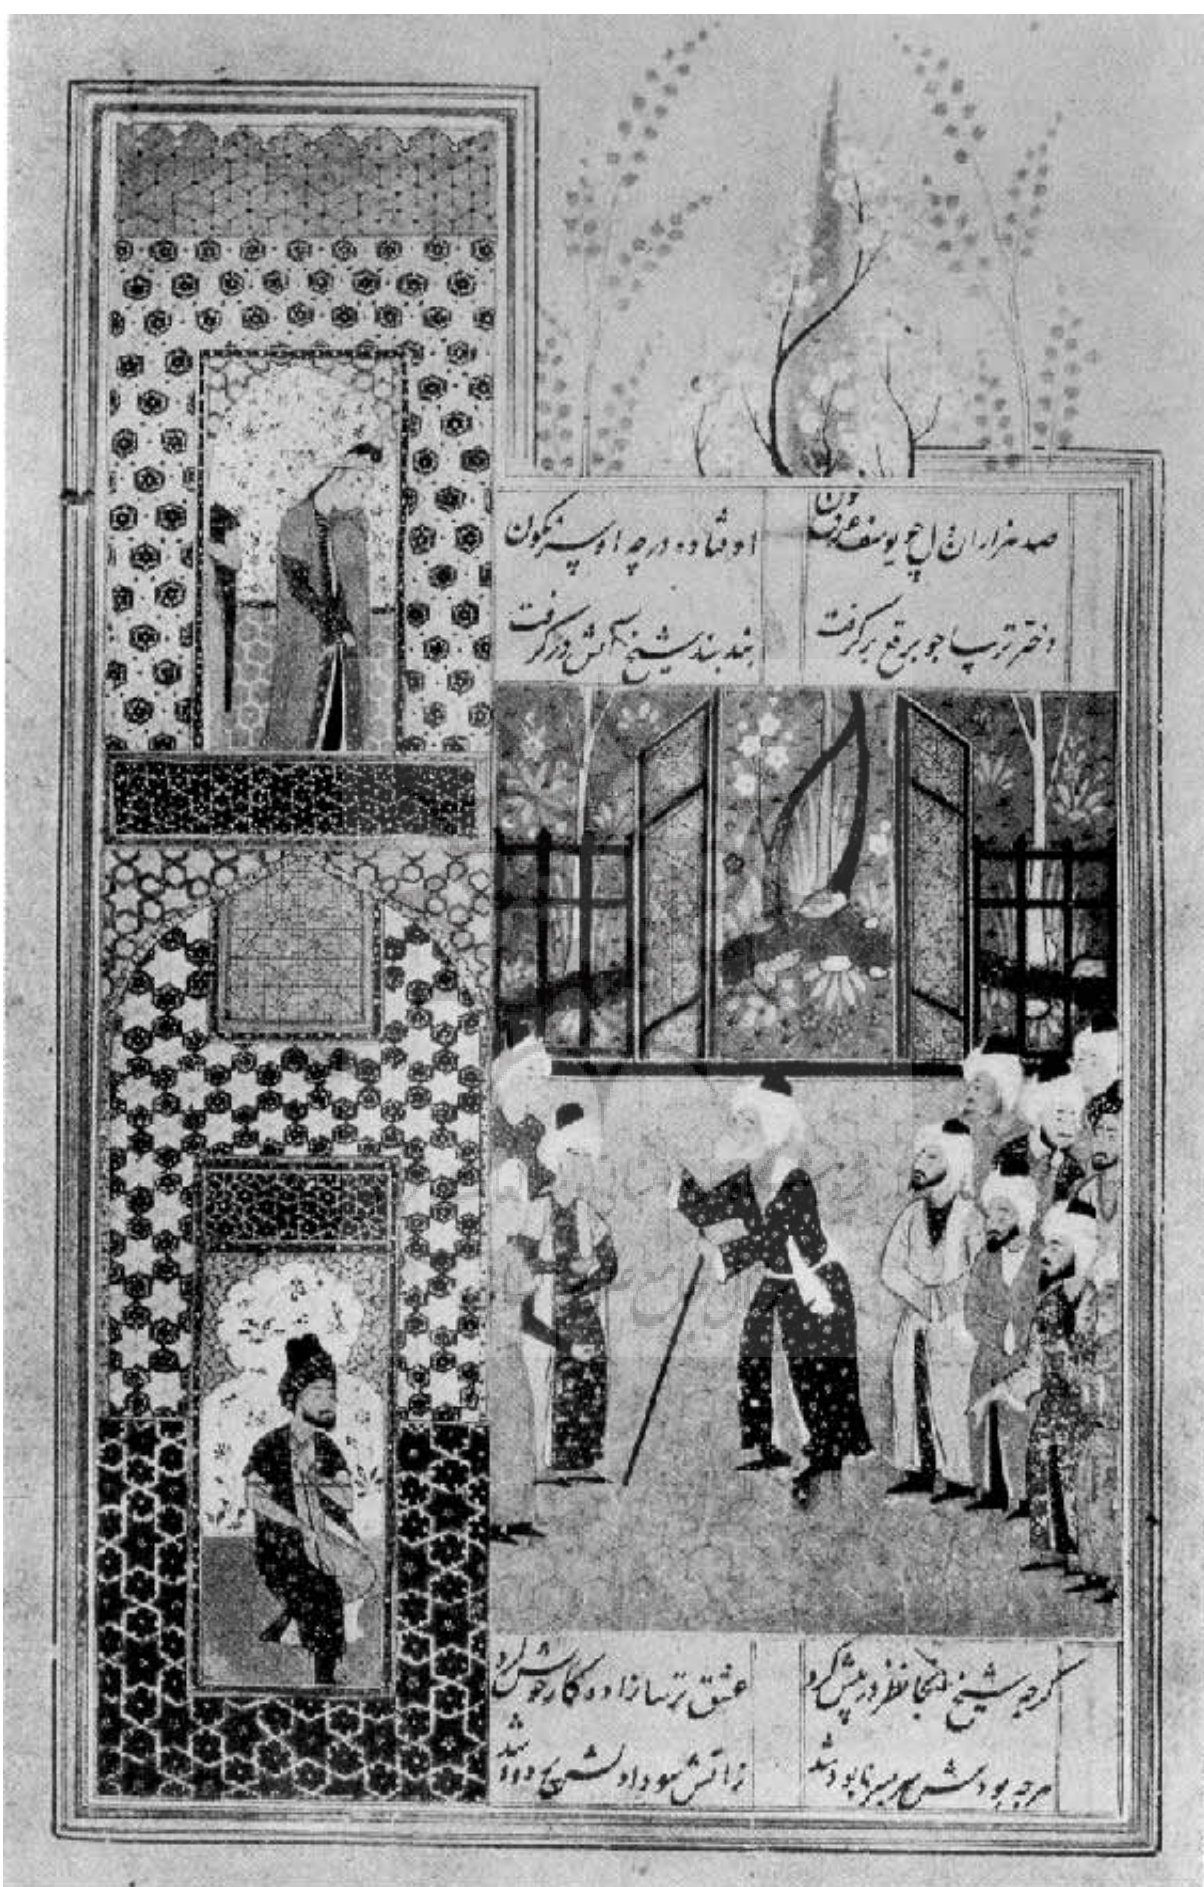 صد هزاران دل چو یوسف غرق خون اوفتاده در چه او سرنگون
دختر ترسا چو برقع برگرفت بند بند شیخ آتش درگرفت
گرچه شیخ آنجا نظر در پیش کرد عشق ترسازاده کار خویش کرد
هرچه بودش سربسر نابود شد زاتش سودا دلش پر دود شد